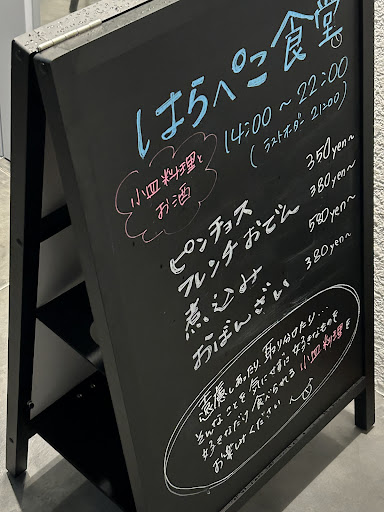 はらぺこ食堂
14:00〜22:00
(ラストオーダー 21:00)
小皿料理と
お酒
ピンチョス 350yen〜
フレンチおでん 380yen〜
煮込み 580yen〜
おばんざい 380yen〜
遠慮しあったり、取り分けたり…
そんなことを気にせずに好きなものを
好きなだけ食べられる小皿料理を
お楽しみください